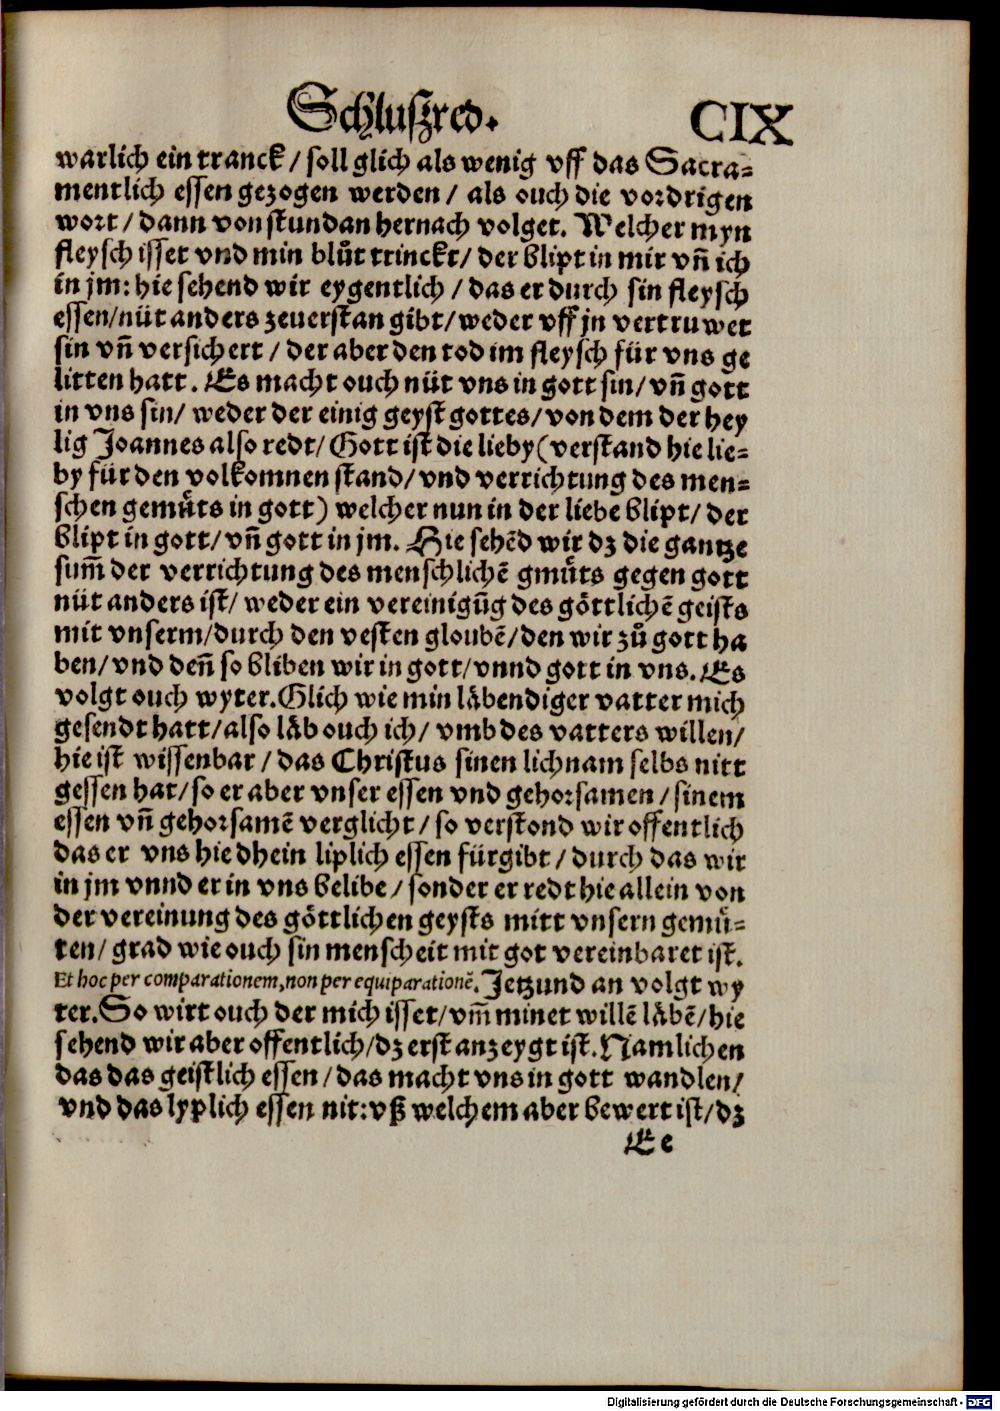 Schluszred. CIX
warlich ein tranck / soll glich als wenig vff das Sacra=
mentlich essen gezogen werden / als ouch die vordrigen
wort / dann von stund an hernach volget. Welcher myn
fleysch isset vnd min blůt trinckt / der blipt in mir vn̄ ich
in jm: hie sehend wir eygentlich / das er durch sin fleysch
essen/nüt anders zeuerstan gibt/weder vff jn vertruwet
sin vn̄ versichert / der aber den tod im fleysch für vns ge
litten hatt. Es macht ouch nüt vns in gott sin/ vn̄ gott
in vns sin/ weder der einig geyst gottes/von dem der hey
lig Joannes also redt/ Gott ist die lieby (verstand hie lie=
by für den volkomnen stand/ vnd verrichtung des men=
schen gemuͤts in gott) welcher nun in der liebe blipt/ der
blipt in gott/ vn̄ gott in jm. Hie sehēd wir dz die gantze
sum̄ der verrichtung des menschlichē gmuͤts gegen gott
nüt anders ist/ weder ein vereinigūg des göttlichē geists
mit vnserm/durch den vesten gloubē/den wir zů gott ha
ben/ vnd den̄ so bliben wir in gott/ vnnd gott in vns. Es
volgt ouch wyter. Glich wie min läbendiger vatter mich
gesendt hatt/also läb ouch ich/ vmb des vatters willen/
hie ist wissenbar / das Christus sinen lichnam selbs nitt
gessen hat/ so er aber vnser essen vnd gehorsamen / sinem
essen vn̄ gehorsamē verglicht / so verstond wir offentlich
das er vns hie dhein liplich essen fürgibt / durch das wir
in jm vnnd er in vns belibe / sonder er redt hie allein von
der vereinung des göttlichen geysts mitt vnsern gemuͤ=
ten/ grad wie ouch sin menscheit mit got vereinbaret ist.
Et hoc per comparationem, non per equiparationē. Jetzund an volgt wy
ter. So wirt ouch der mich isset/ vm̄ minet willē läbē/ hie
sehend wir aber offentlich/dz erst anzeygt ist. Namlichen
das das geistlich essen / das macht vns in gott wandlen/
vnd das lyplich essen nit: vß welchem aber bewert ist/ dz
Ee
Digitalisierung gefördert durch die Deutsche Forschungsgemeinschaft - DFG